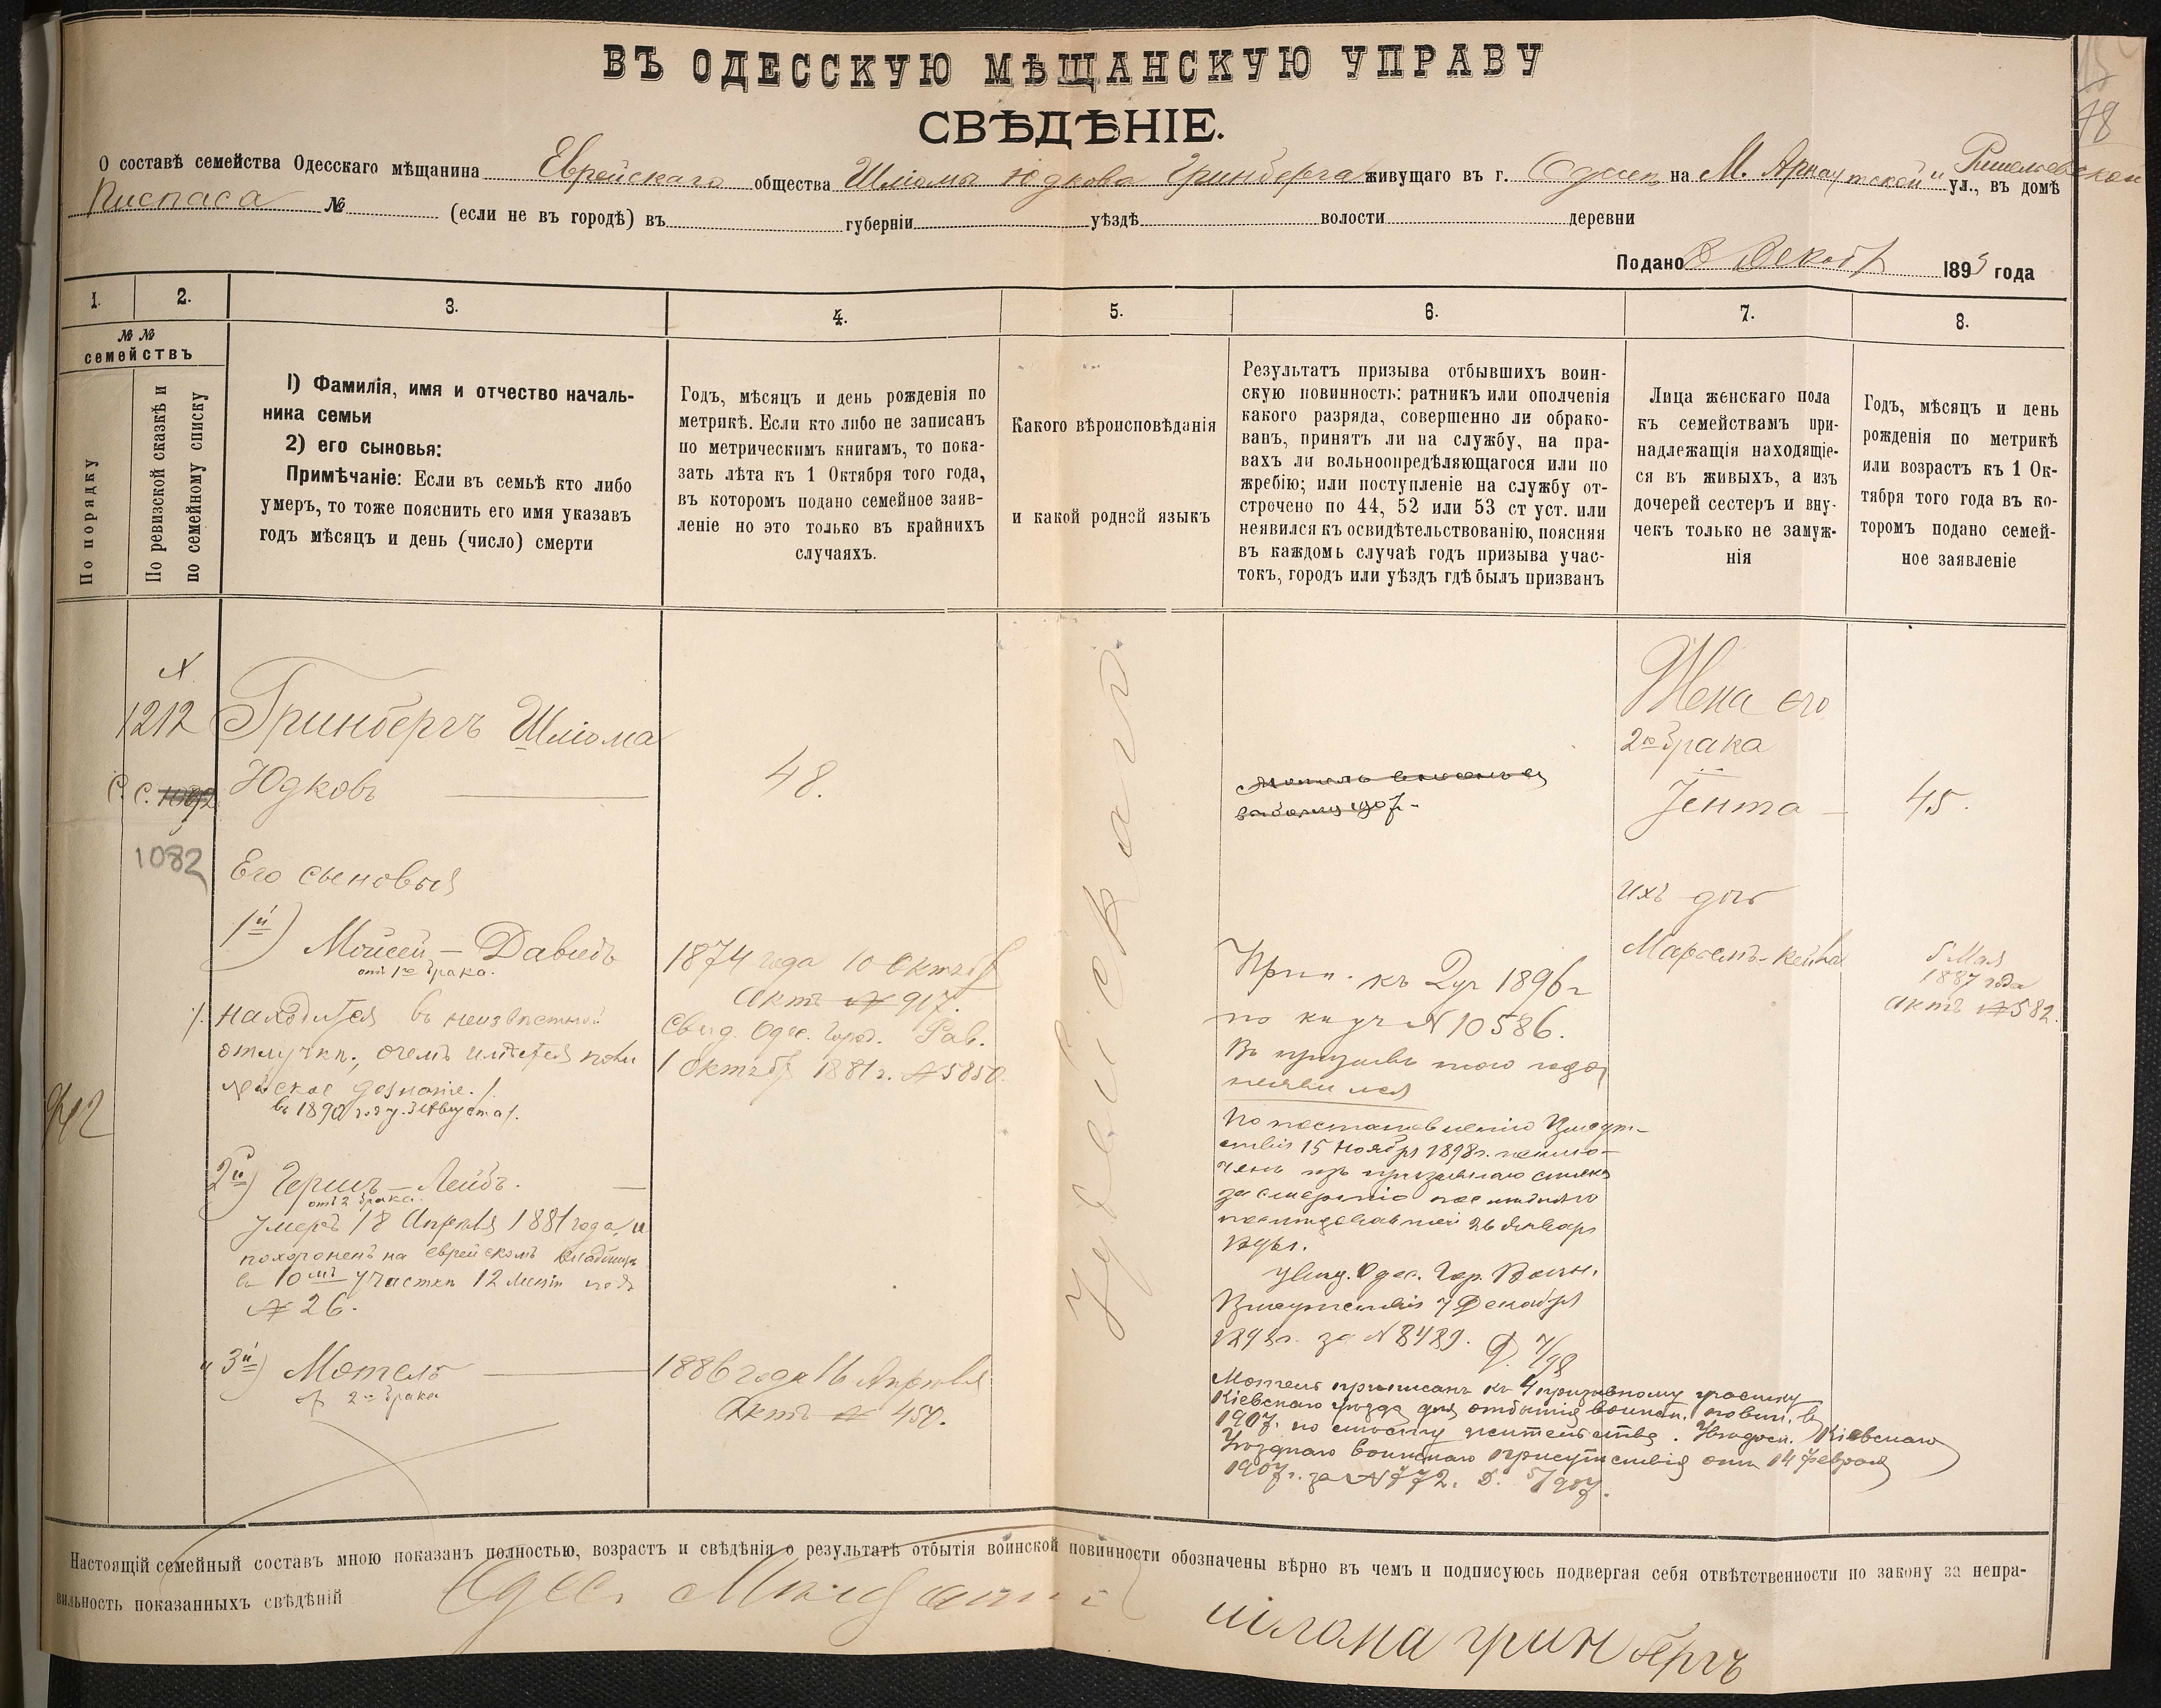 ВЪ ОДЕССКУЮ МѢЩАНСКУЮ УПРАВУ
СВѢДѢНІЕ.
О составѣ семейства Одесскаго мѣщанина Еврейскаго общества Шліомы Юдкова Гринберга живущаго въ г. Одессѣ на М. Арнаутской и Ришельевской ул., въ домѣ
Писпаса № (если не въ городѣ) въ губерніи уѣздѣ волости деревни
Подано 8 Декабр 1893 года
1. 2. 3. 4. 5. 6. 7. 8.
№ №
семействъ
По порядку
По ревизской сказкѣ и
по семейному списку
1) Фамилія, имя и отчество началь-
ника семьи
2) его сыновья:
Примѣчаніе: Если въ семьѣ кто либо
умеръ, то тоже пояснить его имя указавъ
годъ мѣсяцъ и день (число) смерти
Годъ, мѣсяцъ и день рожденія по
метрикѣ. Если кто либо не записанъ
по метрическимъ книгамъ, то пока-
зать лѣта къ 1 Октября того года,
въ которомъ подано семейное заяв-
леніе но это только въ крайнихъ
случаяхъ.
Какого вѣроисповѣданія
и какой родной языкъ
Результатъ призыва отбывшихъ воин-
скую повинность: ратникъ или ополченія
какого разряда, совершенно ли обрако-
ванъ, принятъ ли на службу, на пра-
вахъ ли вольноопредѣляющагося или по
жребію; или поступленіе на службу от-
строчено по 44, 52 или 53 ст уст. или
неявился къ освидѣтельствованію, поясняя
въ каждомъ случаѣ годъ призыва учас-
токъ, городъ или уѣздъ гдѣ былъ призванъ
Лица женскаго пола
къ семействамъ при-
надлежащія находящіе-
ся въ живыхъ, а изъ
дочерей сестеръ и вну-
чекъ только не замуж-
нія
Годъ, мѣсяцъ и день
рожденія по метрикѣ
или возрастъ къ 1 Ок-
тября того года въ ко-
торомъ подано семей-
ное заявленіе
1212
С. С.
1082
Гринбергъ Шліома
Юдковъ
48.
Его сыновья
1й) Мойсей-Давидъ
отъ 1го брака.
находится въ неизвѣстной
отлучкѣ, очемъ имѣется поли
цейское дознаніе.
въ 1890 году 3 Августа
1874 года 10 Октябр
Актъ № 917.
Свид. Одес. Город. Рав.
1 Октябр 1881 г. № 5850
2й) Гершъ-Лейбъ.
отъ 2 брака.
умеръ 18 Апрѣля 1881 года и
похороненъ на еврейскомъ кладбищѣ
въ 10мъ участкѣ 12 линіи подъ
№ 26.
3й) Мотель
отъ 2го брака
1886 года 16 Апрѣля
Актъ № 450.
Іудейскаго
Мотель
1907
Прип. къ 2 уч 1896 г
по кн уч № 10586.
Въ призывѣ того года
неявился
По постановленію Присут-
ствія 15 Ноября 1898 г. исклю-
ченъ изъ призывного списка
за смертію
послѣдовавшей 26 Январ
увѣд. Одес. Гор. Воин.
Присутствія 7 Декабря
1898 г. за № 8429.
Мотель приписанъ къ 4 призывному участку
Кіевскаго уѣзда для отбытія воинск. повин. въ
1907. по списку жительства. Увѣдом. Кіевскаго
Уѣзднаго воинскаго присутствія отъ 14 Февраля
1907 г. за № 772.
Жена его
2го брака
Іента 45.
ихъ дочь
5 Мая
1887 года
Актъ № 582.
Настоящій семейный составъ мною показанъ полностью, возрастъ и свѣдѣнія о результатѣ отбытія воинской повинности обозначены вѣрно въ чемъ и подписуюсь подвергая себя отвѣтственности по закону за непра-
вильность показанныхъ свѣдѣній
Одес. Мѣщанинъ
шлома гринбергъ